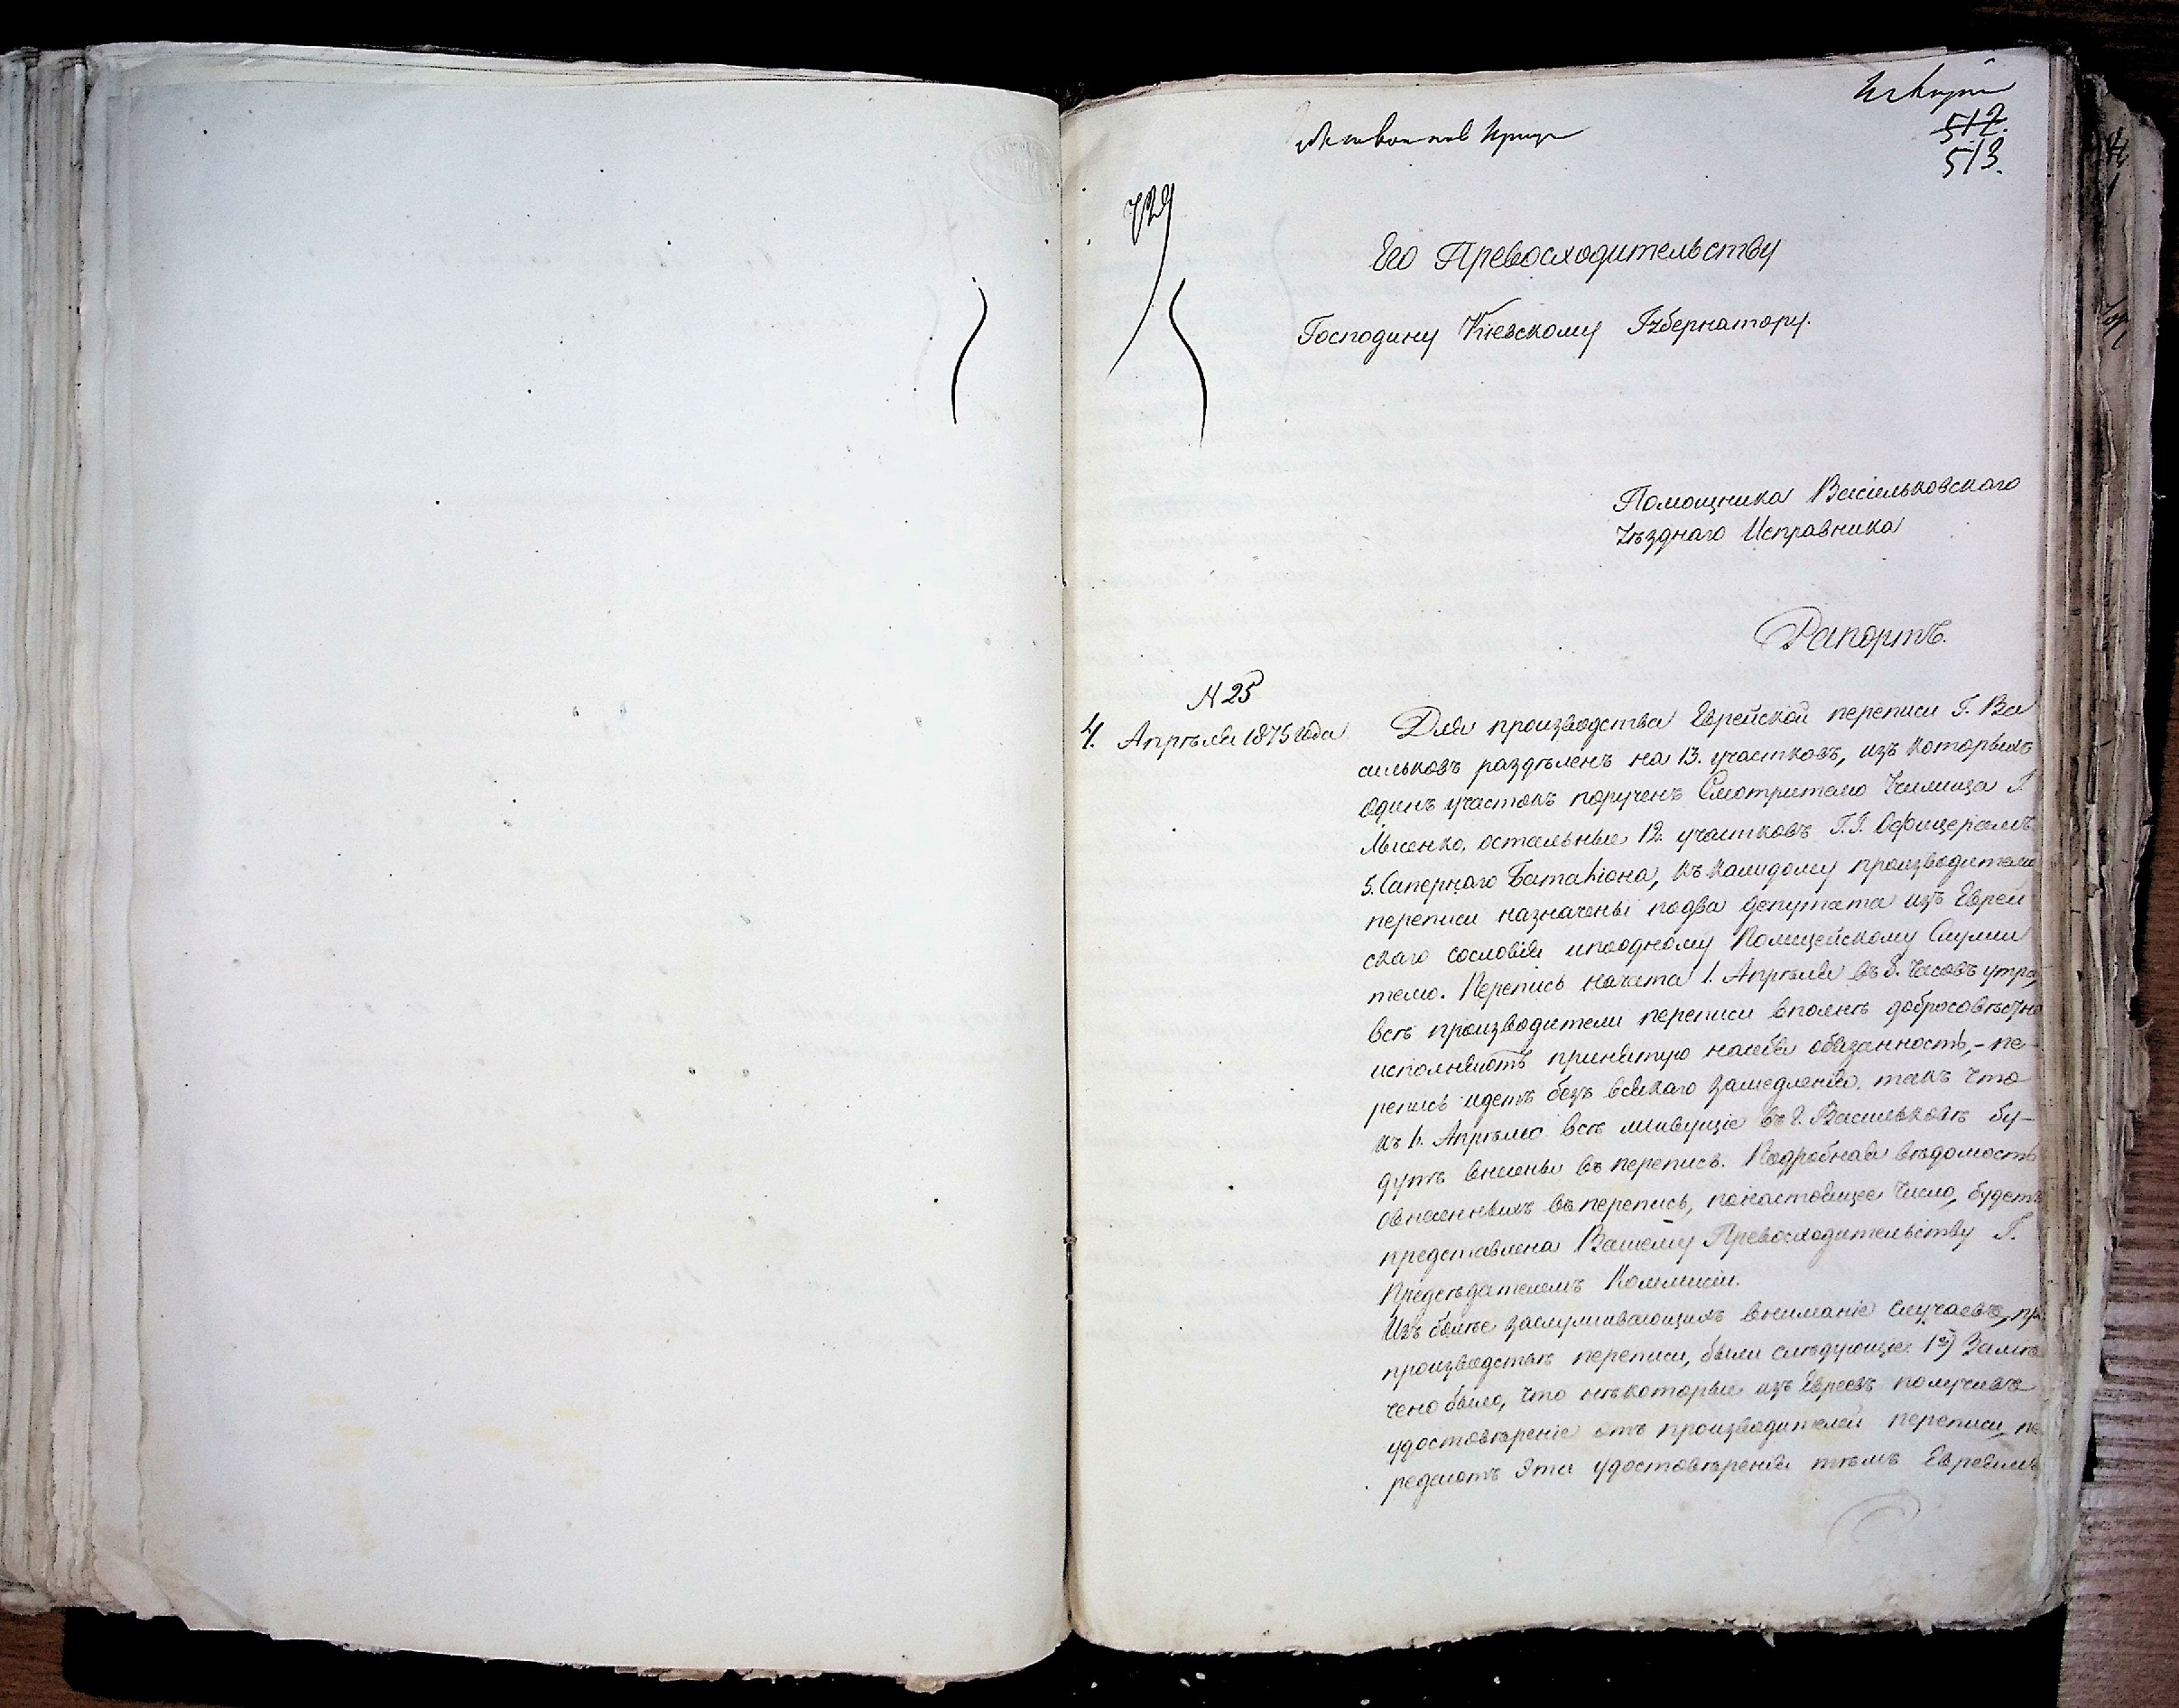 512.
513.
Его Превосходительству
Господину Кіевскому Губернатору.
Помощника Васильковскаго
Уѣзднаго Исправника
Рапортъ.
N 25
4. Апрѣля 1875 года
Для производства Еврейской переписи Г. Ва
сильковъ раздѣленъ на 13. участковъ, изъ которыхъ
одинъ участокъ порученъ Смотрителю Училища Г.
Лысенко, остальные 12. участковъ Г.Г. Офицерамъ
5. Сапернаго Баталіона, къ каждому производителю
переписи назначены подва депутата изъ Еврей
скаго сословія ипоодному Полицейскому Служи
телю. Перепись начата 1. Апрѣля въ 8. часовъ утра,
всѣ производители переписи вполнѣ добросовѣстно
исполняютъ принятую насебя обязанность,- пе-
репись идетъ безъ всякаго замедленія, такъ что
къ Апрѣлю всѣ живущіе въ г. Васильковѣ бу-
дутъ внесены въ перепись. Подробная вѣдомость
овнесенныхъ въ перепись, понастоящее число, будетъ
представлена Вашему Превосходительству Г.
Предсѣдателемъ Коммисіи.
Изъ болѣе заслуживающихъ вниманіе случаевъ, при
производствѣ переписи, были слѣдующіе: 1е) Замѣ
чено было, что нѣкоторые изъ Евреевъ получивъ
удостовѣреніе отъ производителей переписи, пе
редаютъ эти удостовѣренія тѣмъ Евреямъ